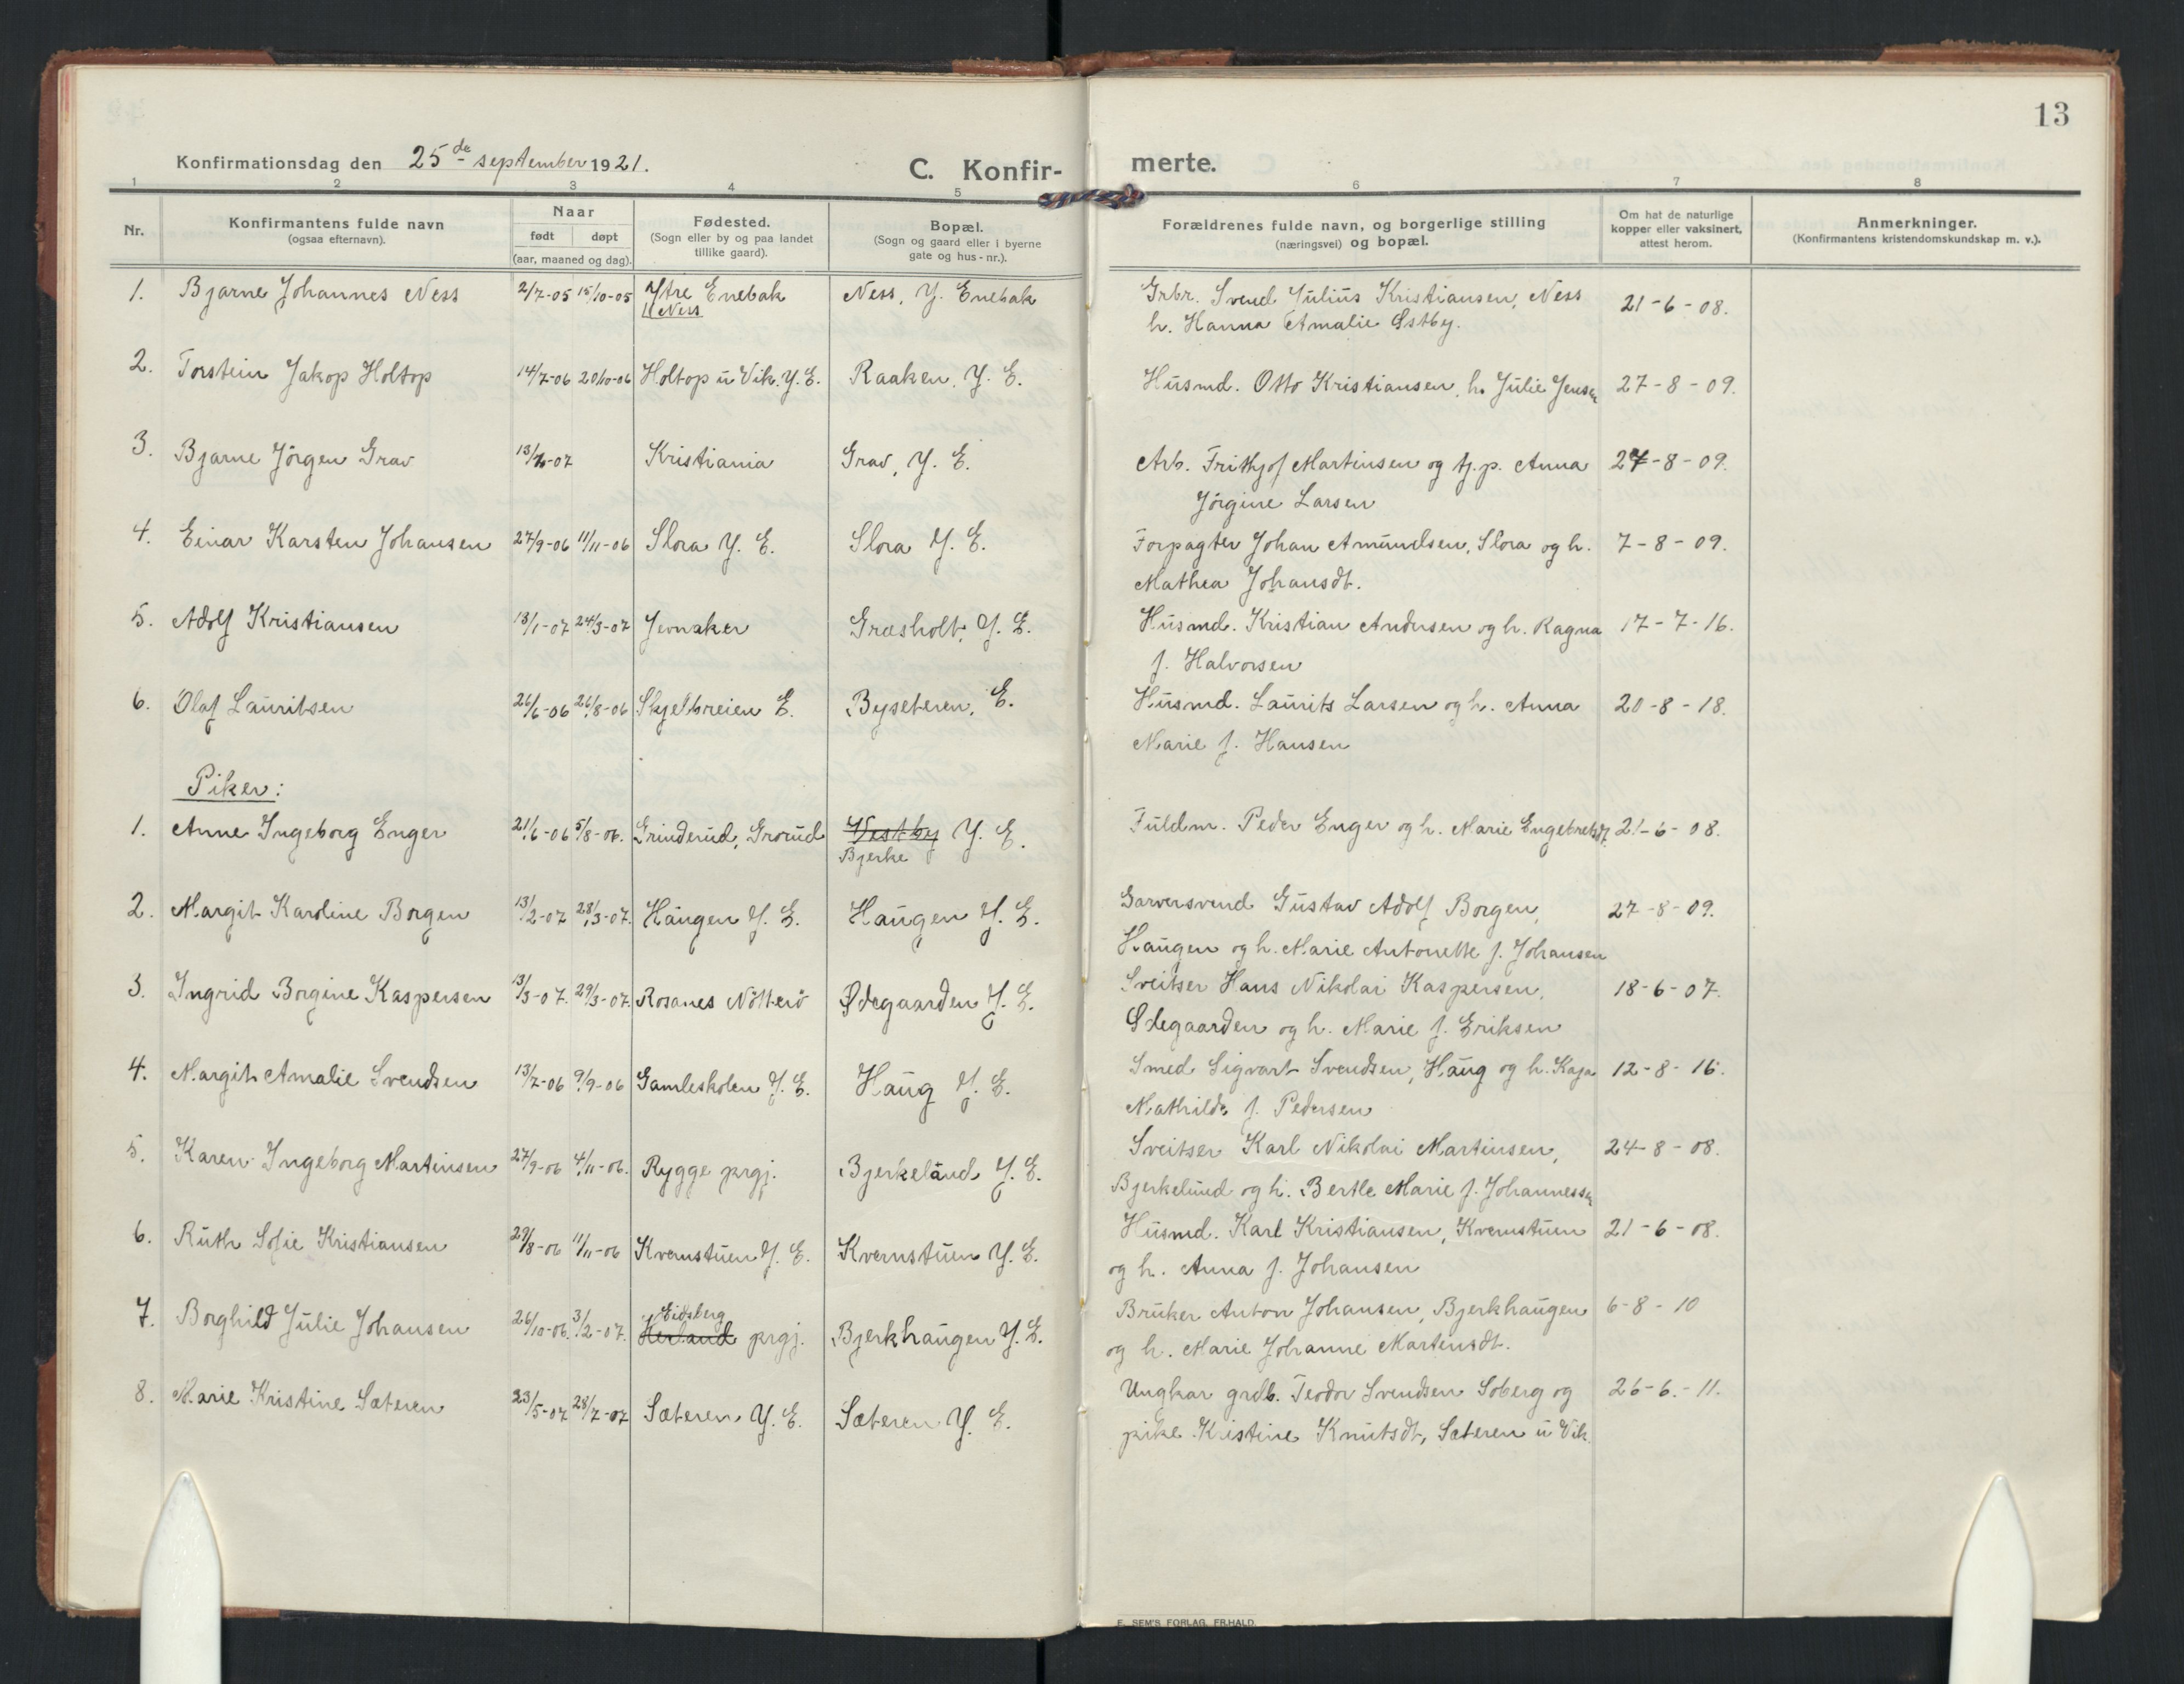 13
Konfirmationsdag den 25de september 1921.
C. Konfir- merte.
1 2 3 4 5 6 7 8
Nr.
Konfirmantens fulde navn
(ogsaa efternavn).
Naar
født døpt
(aar, maaned og dag).
Fødested.
(Sogn eller by og paa landet
tillike gaard).
Bopæl.
(Sogn og gaard eller i byerne
gate og hus-nr.).
Forældrenes fulde navn, og borgerlige stilling
(næringsvei) og bopæl.
Om hat de naturlige
kopper eller vaksinert,
attest herom.
Anmerkninger.
(Konfirmantens kristendomskundskap m. v.).
1. Bjarne Johannes Ness 2/7-05 15/10-05 Ytre Enebak Ness, Y. Enebak Grbr. Svend Julius Kristiansen, Ness 21-6-08.
Ness h. Hanna Amalie Østby.
2. Torstein Jakop Holtop 14/7-06 20/10-06 Holtop u Vik. Y. E. Raaken, Y. E. Husmd. Otto Kristiansen, h. Julie Jensen 27-8-09.
3. Bjarne Jörgen Grav 13/7-07 Kristiania Grav, Y. E. Arb. Frithjof Martinsen og tj. p. Anna 27-8-09.
Jörgine Larsen
4. Einar Karsten Johansen 27/9-06 11/11-06 Slora Y. E. Slora Y. E. Forpagter Johan Amundsen, Slora og h. 7-8-09.
Mathea Johansdt.
5. Adolf Kristiansen 13/1-07 24/3-07 Jevnaker Græsholt, Y. E. Husmd. Kristian Andersen og h. Ragna 17-7-16.
f. Halvorsen
6. Olaf Lauritsen 26/6-06 26/8-06 Skjelbreien E. Byseteren, E. Husmd. Laurits Larsen og h. Anna 20-8-18.
Marie f. Hansen
Piker:
1. Anne Ingeborg Enger 21/6-06 5/8-06. Grinderud, Grorud Vestby Y. E. Fuldm. Peder Enger og h. Marie Engebretsdt. 21-6-08.
Bjerke
2. Margit Karoline Borgen 13/2-07 28/3-07. Haugen Y. E. Haugen Y. E. Garversvend Gustav Adolf Borgen, 27-8-09.
Haugen og h. Marie Antonette f. Johansen
3. Ingrid Borgine Kaspersen 13/3-07. 29/3-07. Rosanes Nötterö Ødegaarden Y. E. Sveitser Hans Nikolai Kaspersen, 18-6-07.
Ødegaarden og h. Marie f. Eriksen
4. Margit Amalie Svendsen 13/7-06 9/9-06 Gamleskolen Y. E. Haug Y. E. Smed Sigvart Svendsen, Haug og h. Kaja 12-8-16.
Mathilde f. Pedersen
5. Karen Ingeborg Martinsen 27/9-06 4/11-06. Rygge prgj. Bjerkelund Y. E. Sveitser Karl Nikolai Martinsen, 24-8-08.
Bjerkelund og h. Bertle Marie f. Johannessen
6. Ruth Sofie Kristiansen 29/8-06 11/11-06 Kvernstuen Y. E. Kvernstuen Y. E. Husmd. Karl Kristiansen, Kvernstuen 21-6-08.
og h. Anna f. Johansen
Eidsberg
7. Borghild Julie Johansen 26/10-06. 3/2-07. Herland prgj. Bjerkhaugen Y. E. Bruker Anton Johansen, Bjerkhaugen 6-8-10
og h. Marie Johanne Martensdt.
8. Marie Kristine Sæteren 23/5-07 28/7-07 Sæteren, Y. E. Sæteren Y. E. Ungkar grdb. Teodor Svendsen Soberg og 26-6.-11.
pike Kristine Knutsdt, Sæteren u Vik.
E. SEM'S FORLAG, FR.HALD.